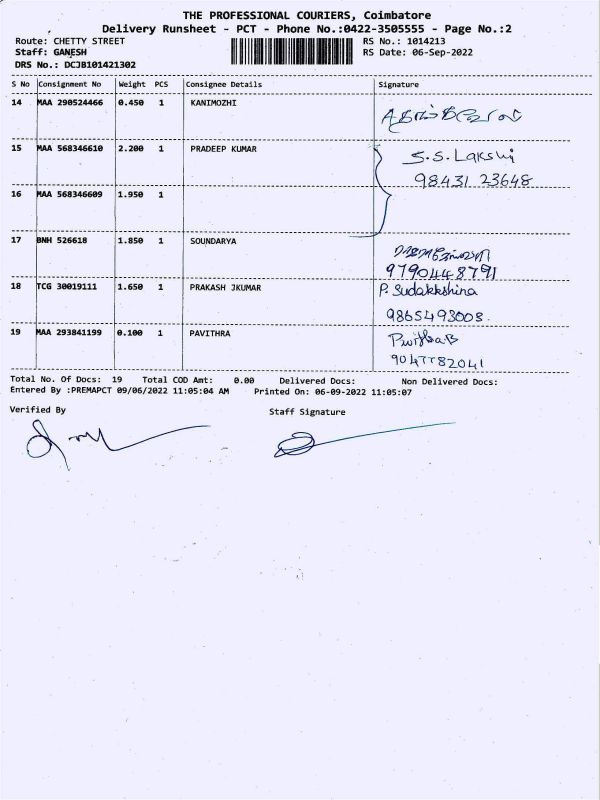 THE PROFESSIONAL COURIERS, Coimbatore
Delivery Runsheet - PCT - Phone No.:0422-3505555 - Page No.:2
Route: CHETTY STREET RS No.: 1014213
Staff: GANESH RS Date: 06-Sep-2022
DRS No.: DCJB101421302
S No Consignment No Weight PCS Consignee Details Signature
14 MAA 290524466 0.450 1 KANIMOZHI
15 MAA 568346610 2.200 1 PRADEEP KUMAR S.S. Lakshi
98431 23648
16 MAA 568346609 1.950 1
17 BNH 526618 1.850 1 SOUNDARYA
9790448791
18 TCG 30019111 1.650 1 PRAKASH JKUMAR P. Sudakkshina
9865493008.
19 MAA 293841199 0.100 1 PAVITHRA
9047782041
Total No. Of Docs: 19 Total COD Amt: 0.00 Delivered Docs: Non Delivered Docs:
Entered By :PREMAPCT 09/06/2022 11:05:04 AM Printed On: 06-09-2022 11:05:07
Verified By Staff Signature